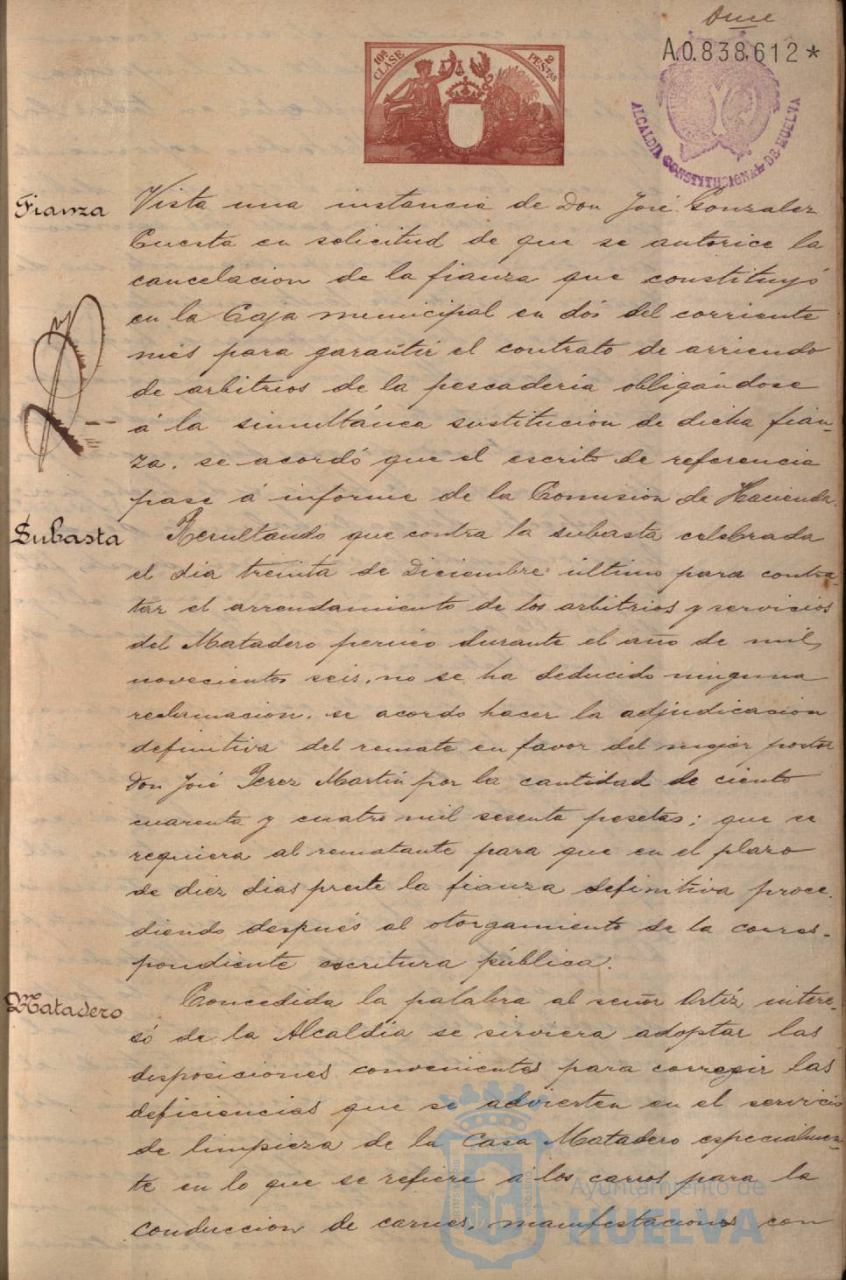 Once
A.0.838,612*
10ª CLASE
2 PESTAS
ALCALDIA CONSTITUCIONAL DE HUELVA
Fianza
Vista una instancia de Don José Gonzalez
Cuesta en solicitud de que se autorice la
cancelacion de la fianza que constituyó
en la Caja municipal en dós del corriente
mes para garantir el contrato de arriendo
de arbitrios de la pescaderia obligándose
á la simultánea sustitucion de dicha fian-
za. se acordó que el escrito de referencia
pase á informe de la Comision de Hacienda.
Subasta
Resultando que contra la subasta celebrada
el dia treinta de Diciembre último para contra-
tar el arrendamiento de los arbitrios y servicios
del Matadero perúco durante el año de mil
novecientos seis, no se ha deducido ninguna
reclamacion. se acordo hacer la adjudicacion
definitiva del remate en favor del mejor postor
Don José Perez Martin por la cantidad de ciento
cuarenta y cuatro mil sesenta pesetas; que se
requiera al rematante para que en el plazo
de diez dias preste la fianza definitiva proce-
diendo después al otorgamiento de la corres-
pondiente escritura pública.
Matadero
Concedida la palabra al señor Ortiz intere-
só de la Alcaldía se sirviera adoptar las
disposiciones convenientes para corregir las
deficiencias que se advierten en el servicio
de limpieza de la Casa Matadero especialmen-
te en lo que se refiere á los carros para la
conduccion de carnes, manifestaciones con
Ayuntamiento de
HUELVA